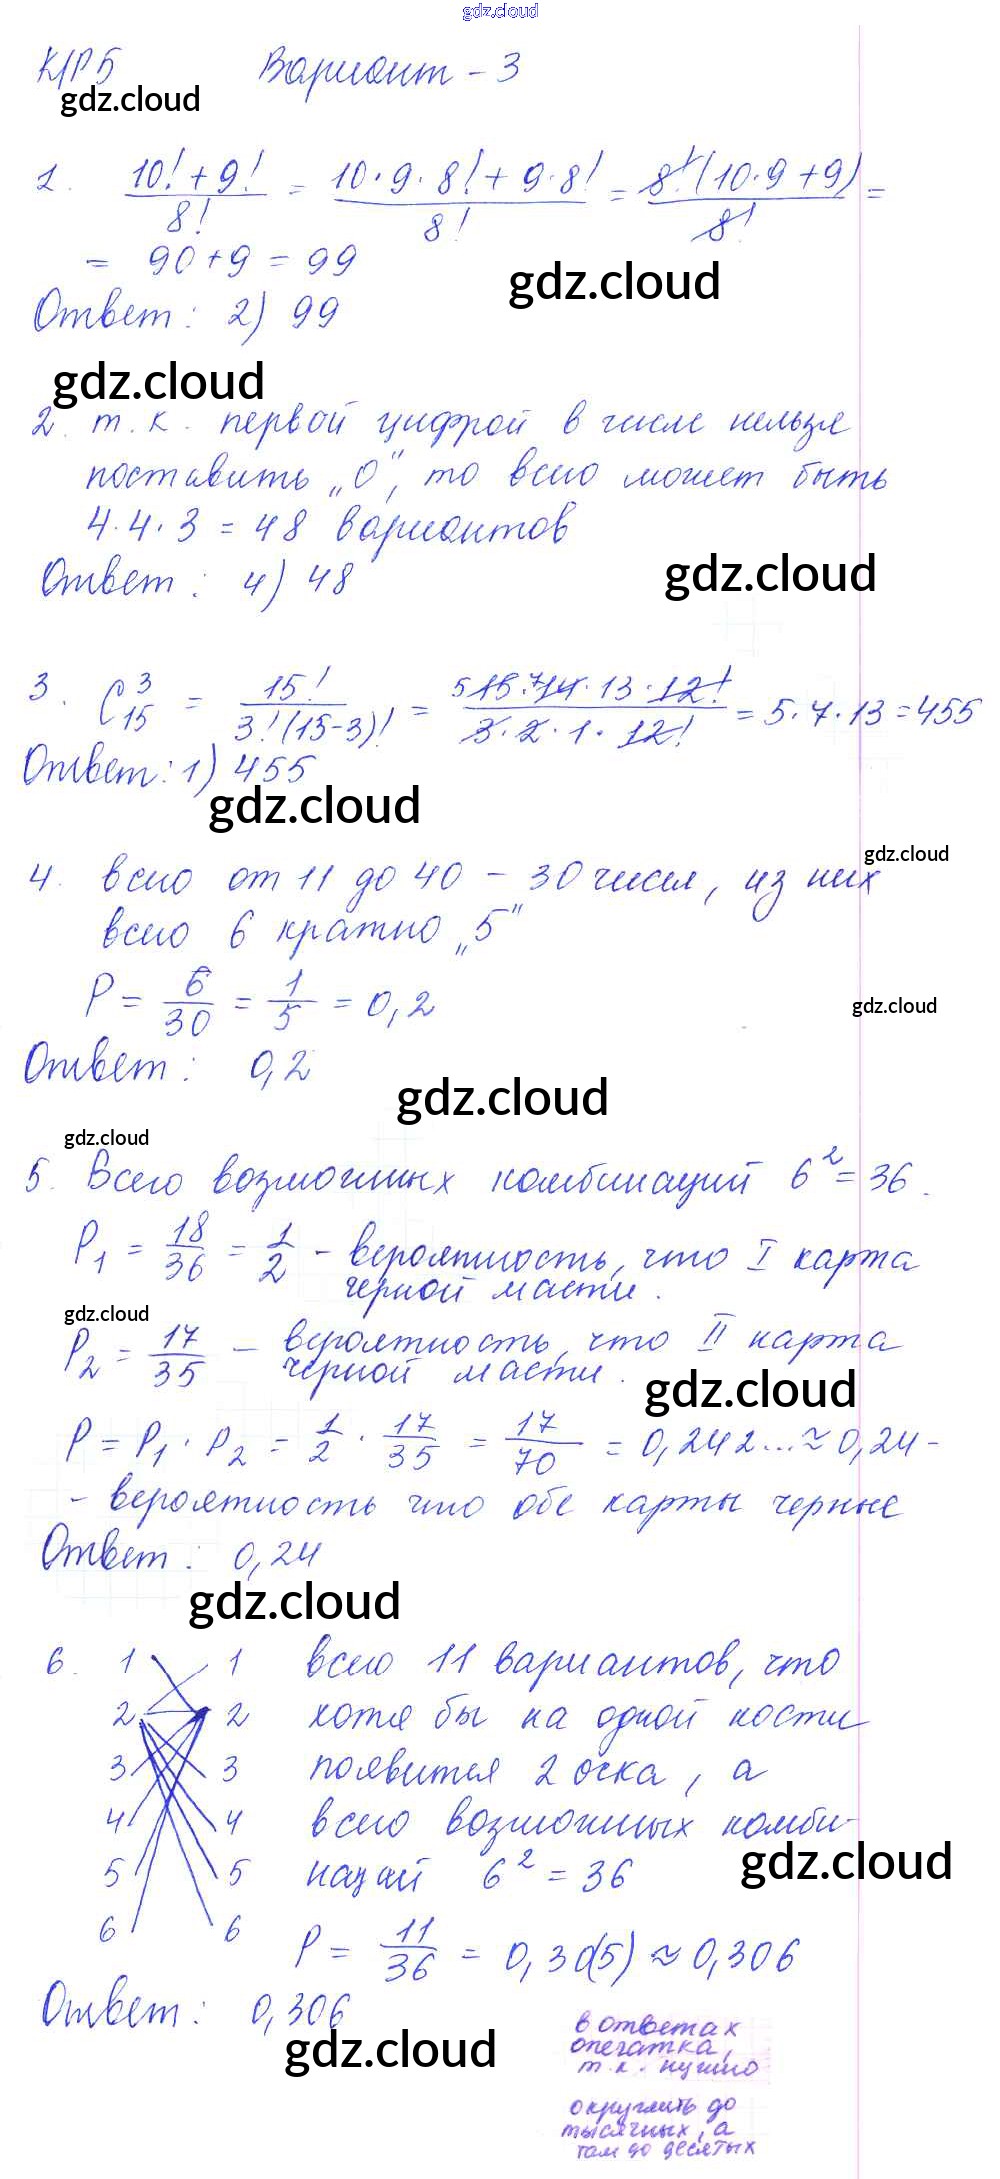 gdz.cloud
К/Р 5 Вариант - 3
gdz.cloud
1. (10! + 9!)/8! = (10·9·8! + 9·8!)/8! = 8!(10·9+9)/8! =
= 90+9 = 99
gdz.cloud
Ответ: 2) 99
gdz.cloud
2. т.к. первой цифрой в числе нельзя
поставить „0”, то всего может быть
4·4·3 = 48 вариантов
gdz.cloud
Ответ: 4) 48
3. C₁₅³ = 15!/(3!(15-3)!) = (5 15·7 14·13·12!)/(3·2·1·12!) = 5·7·13 = 455
Ответ: 1) 455
gdz.cloud
gdz.cloud
4. всего от 11 до 40 – 30 чисел, из них
всего 6 кратно „5”
P = 6/30 = 1/5 = 0,2
gdz.cloud
Ответ: 0,2
gdz.cloud
gdz.cloud
5. Всего возможных комбинаций 6² = 36.
P₁ = 18/36 = 1/2 – вероятность, что I карта
черной масти.
gdz.cloud
P₂ = 17/35 – вероятность, что II карта
черной масти.
gdz.cloud
P = P₁ · P₂ = 1/2 · 17/35 = 17/70 = 0,242... ≈ 0,24 -
- вероятность что обе карты черные
Ответ: 0,24
gdz.cloud
6. 1 1 всего 11 вариантов, что
2 2 хотя бы на одной кости
3 3 появится 2 очка, а
4 4 всего возможных комби-
gdz.cloud
5 5 наций 6² = 36
6 6 P = 11/36 = 0,30(5) ≈ 0,306
Ответ: 0,306
gdz.cloud
в ответах
опечатка,
т.к. нужно
округлить до
тысячных, а
там до десятых